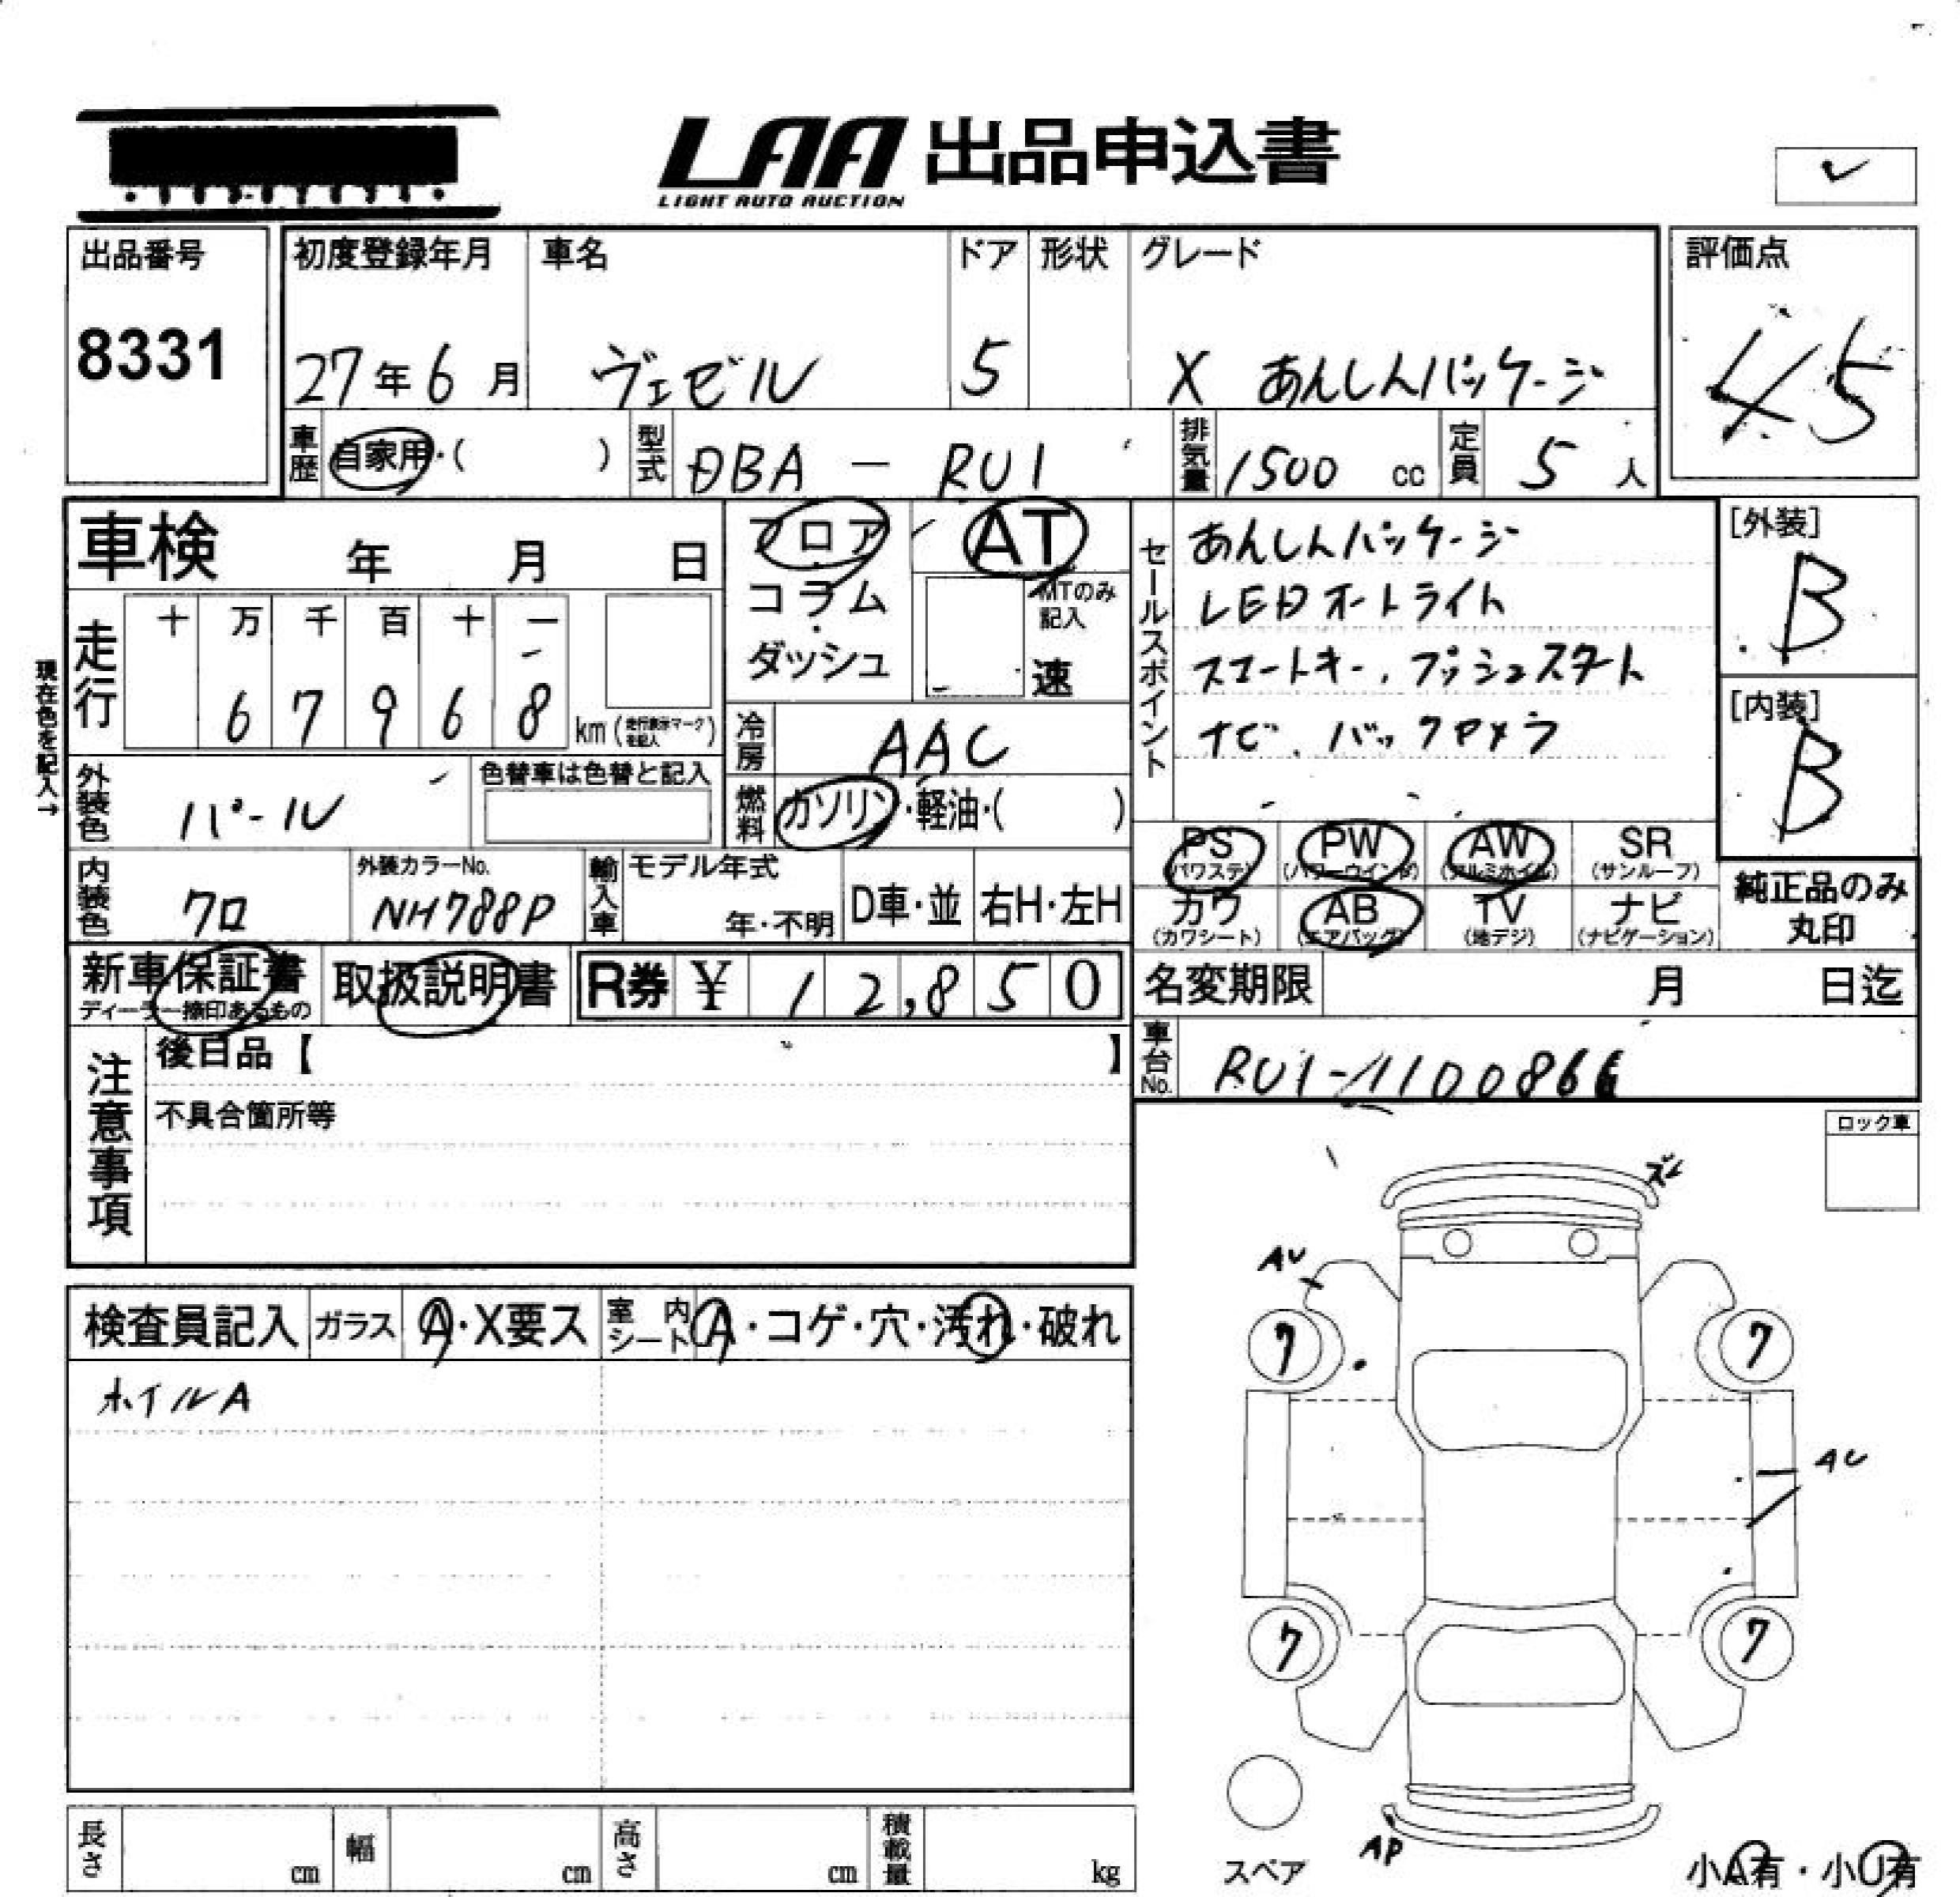 LAA 出品申込書
LIGHT AUTO AUCTION
出品番号
8331
初度登録年月
27年6月
車名
ヴェゼル
ドア
5
形状
グレード
X あんしんパッケージ
評価点
4.5
車歴
自家用・( )
型式
DBA - RU1
排気量
1500 cc
定員
5 人
車検 年 月 日
フロア
・
コラム
・
ダッシュ
AT
MTのみ
記入
速
セールスポイント
あんしんパッケージ
LEDオートライト
スマートキー、プッシュスタート
ナビ、バックカメラ
[外装]
B
[内装]
B
現在色を記入→
走行
十 万 千 百 十 一
6 7 9 6 8
km(走行表示マークを記入)
冷房
AAC
外装色
パール
色替車は色替と記入
燃料
ガソリン・軽油・( )
PS
(パワステ)
PW
(パワーウインド)
AW
(アルミホイル)
SR
(サンルーフ)
カワ
(カワシート)
AB
(エアバッグ)
TV
(地デジ)
ナビ
(ナビゲーション)
純正品のみ
丸印
内装色
クロ
外装カラーNo.
NH788P
輸入車
モデル年式
年・不明
D車・並
右H・左H
新車保証書
ディーラー捺印あるもの
取扱説明書
R券 ¥ 12,850
名変期限 月 日迄
車台No.
RU1-1100866
注意事項
後日品【 】
不具合箇所等
ロック車
検査員記入
ガラス
A・X要ス
室内シート
A・コゲ・穴・汚れ・破れ
ホイルA
ズレ
AU
7
7
AU
7
7
AP
スペア
小A有・小U有
長さ cm
幅 cm
高さ cm
積載量 kg